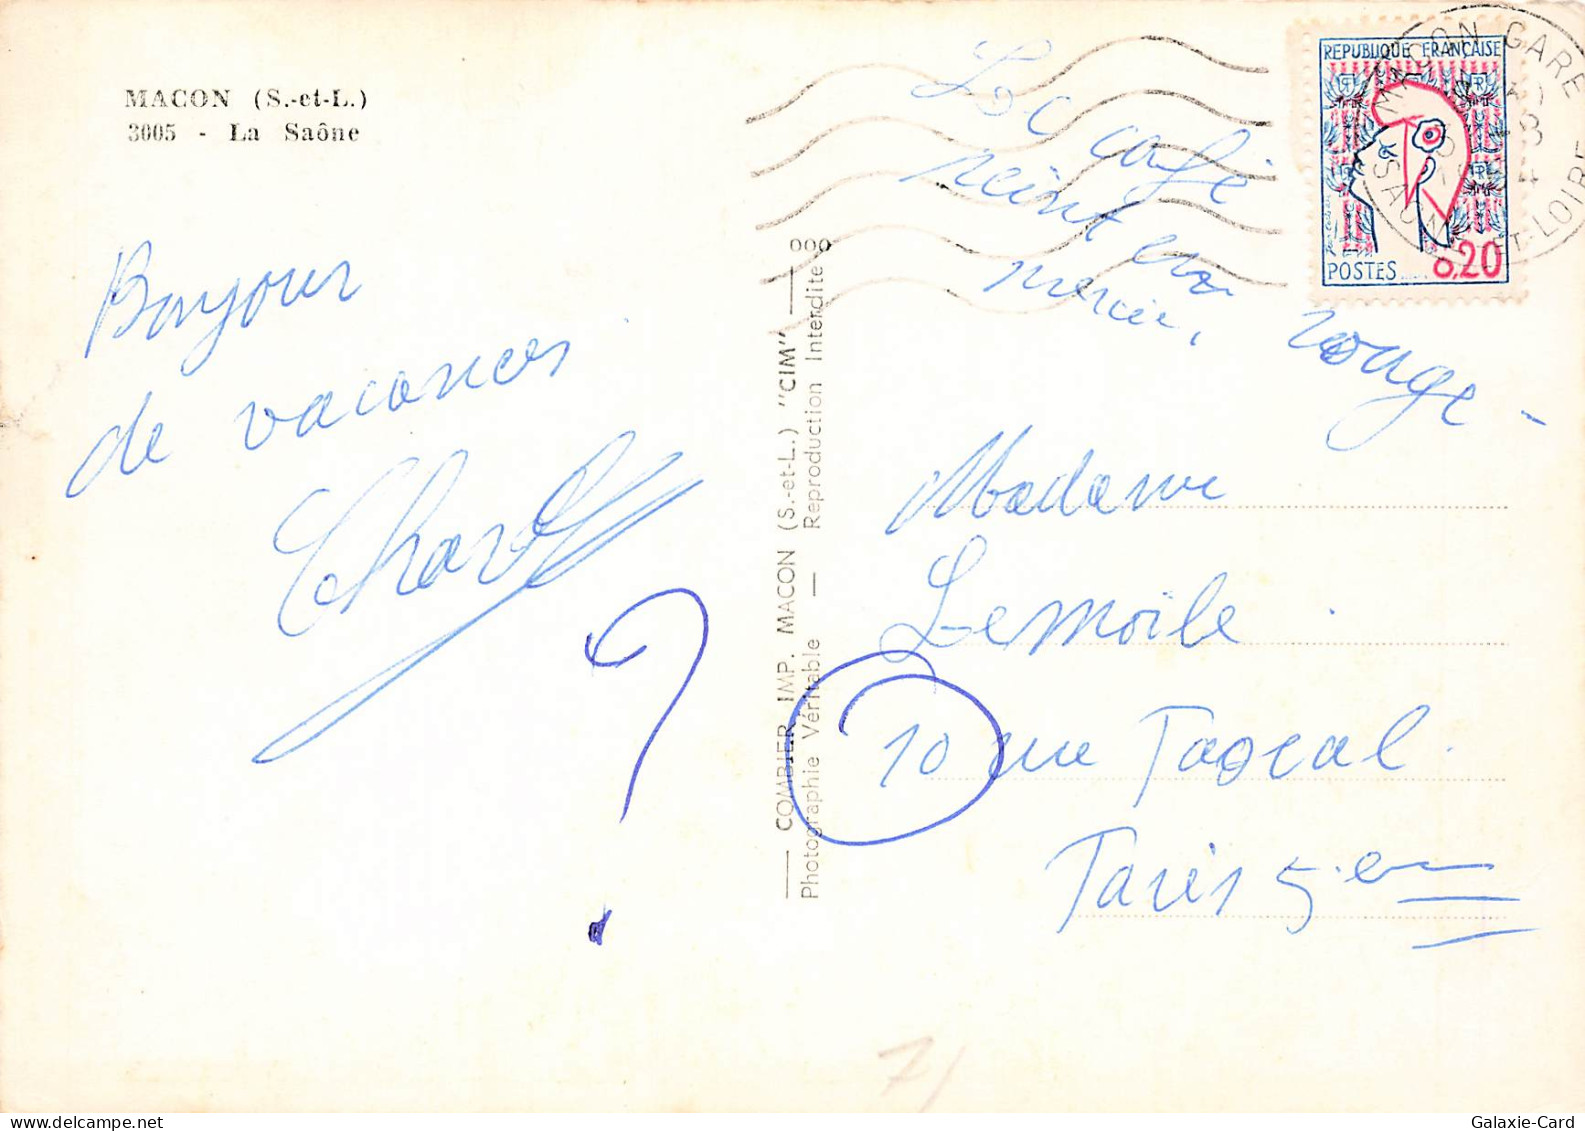 MACON (S.-et-L.)
3005 - La Saône
Bonjour
de vacances
Le café
peint en rouge -
merci,
REPUBLIQUE FRANCAISE
POSTES
0,20
MACON GARE
SAONE-ET-LOIRE
COMBIER IMP. MACON (S.-et-L.) "CIM"
Photographie Véritable — Reproduction Interdite
Madame
Lemoile
10 rue Pascal.
Paris 5.em
?
71
Galaxie-Card